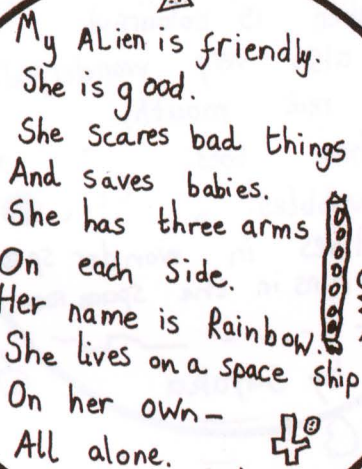 My ALien is friendly.
She is good.
She scares bad things
And saves babies.
She has three arms
On each side.
Her name is Rainbow.
She lives on a space ship
On her own–
All alone.